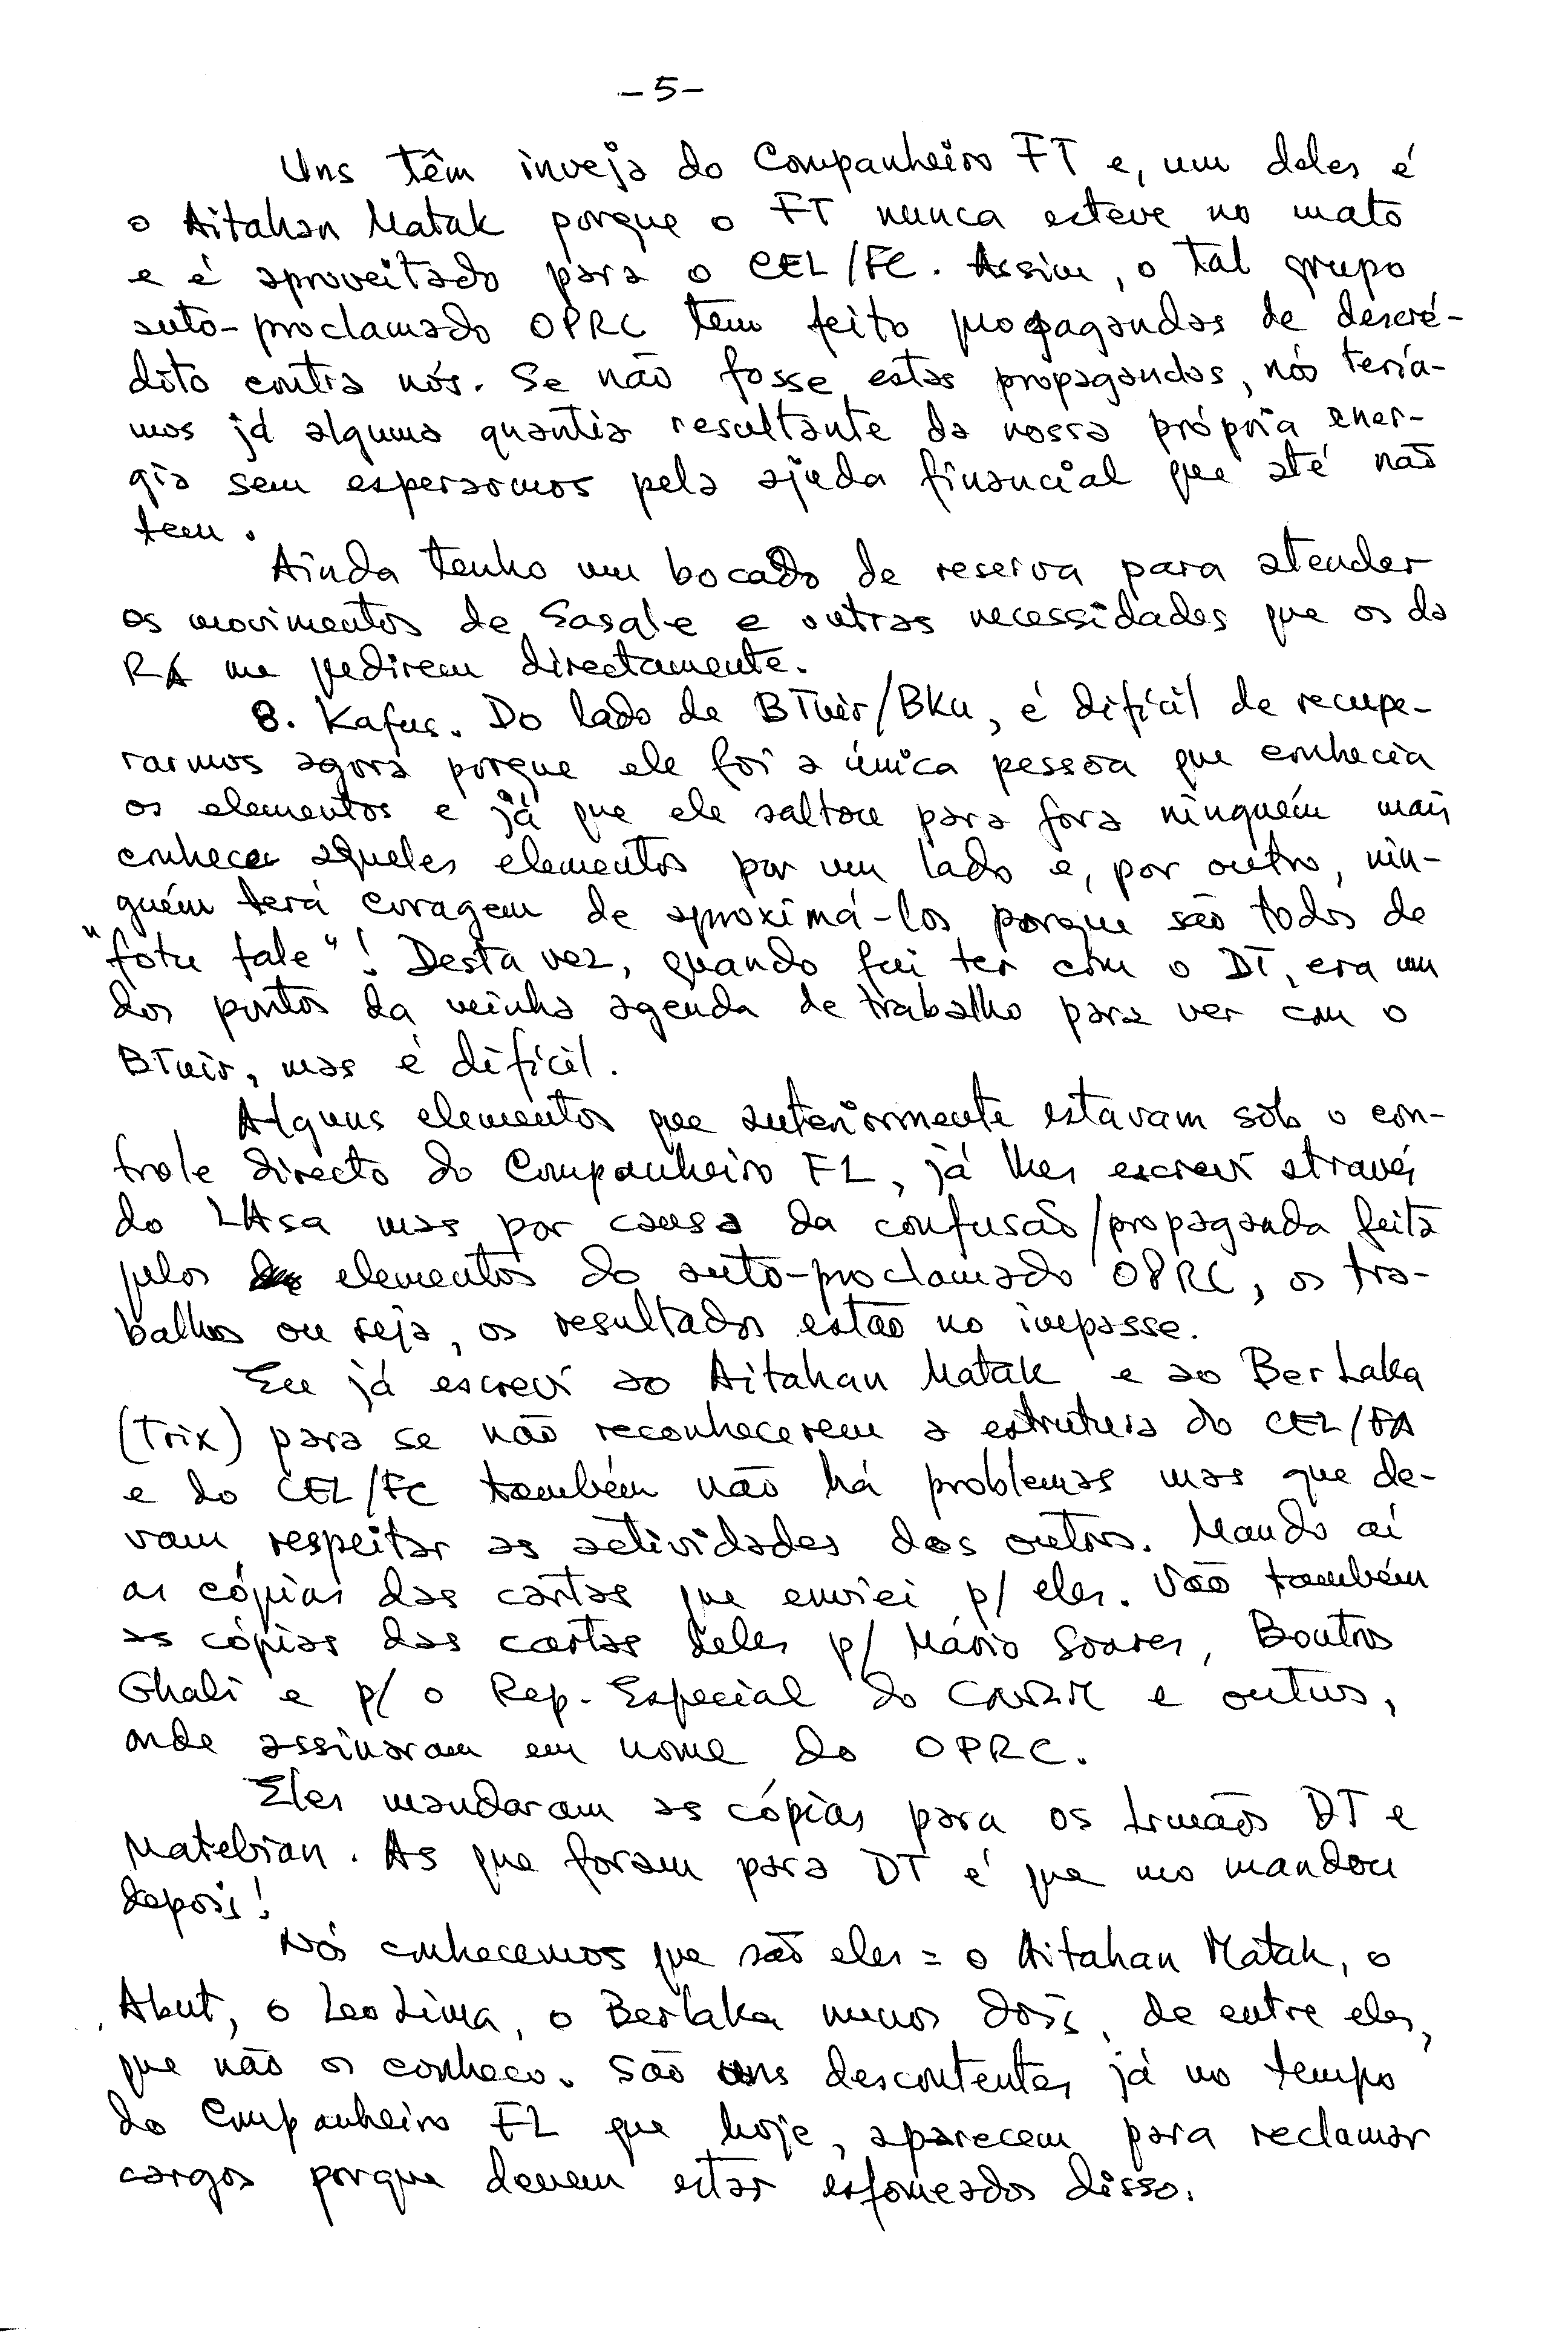 -5-
Uns têm inveja do Companheiro FT e, um deles é
o Aitahan Matak porque o FT nunca esteve no mato
e é aproveitado para o CEL/FC. Assim, o tal grupo
auto-proclamado OPRC tem feito propagandas de descré-
dito contra nós. Se não fosse estas propagandas, nós tería-
mos já alguma quantia resultante da nossa própria ener-
gia sem esperarmos pela ajuda financial que até não
tem.
Ainda tenho um bocado de reserva para atender
os movimentos de Sasale e outras necessidades que os da
RA me pedirem directamente.
8. Kafus. Do lado de BTuir/BKu, é difícil de recupe-
rarmos agora porque ele foi a única pessoa que conhecia
os elementos e já que ele saltou para fora ninguém mais
conhece aqueles elementos por um lado e, por outro, nin-
guém terá coragem de aproximá-los porque são todos de
"fotu tale"! Desta vez, quando fui ter com o DT, era um
dos pontos da minha agenda de trabalho para ver com o
BTuir, mas é difícil.
Alguns elementos que anteriormente estavam sob o con-
trole directo do Companheiro FL, já lhes escrevi através
do LAsa mas por causa da confusão/propaganda feita
pelos elementos do auto-proclamado OPRC, os tra-
balhos ou seja, os resultados estão no impasse.
Eu já escrevi ao Aitahan Matak e ao Ber Laka
(Trix) para se não reconhecerem a estrutura do CEL/FA
e do CEL/FC também não há problemas mas que de-
vam respeitar as actividades dos outros. Mando aí
as cópias das cartas que enviei p/ eles. Vão também
as cópias das cartas deles p/ Mário Soares, Boutros
Ghali e p/ o Rep. Especial do CNRM e outros,
onde assinaram em nome do OPRC.
Eles mandaram as cópias para os Irmãos DT e
Matebian. As que foram para DT é que mo mandou
depois!
Nós conhecemos que são eles = o Aitahan Matak, o
Abut, o Leo Lima, o Berlaka menos dois, de entre eles,
que não os conheço. São uns descontentes já no tempo
do Companheiro FL que hoje, aparecem para reclamar
cargos porque devem estar esfomeados disso.